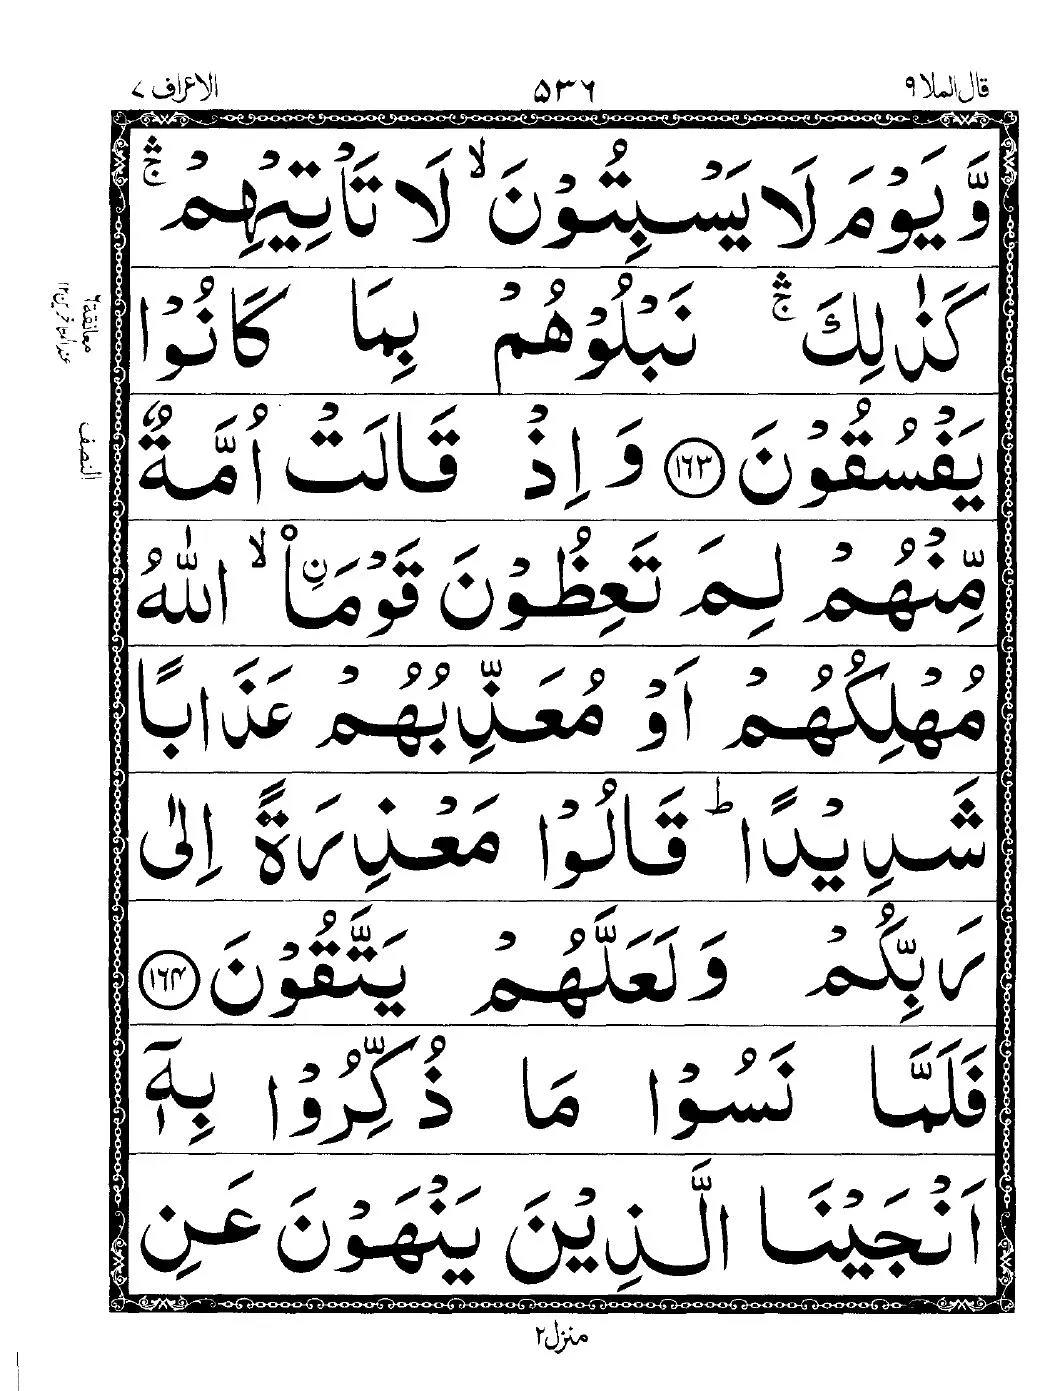 قال الملا ٩
٥٣٦
الاعراف ٧
وَّ يَوْمَ لَا يَسْبِتُوْنَ ۙ لَا تَاْتِيْهِمْ ۛۚ
كَذٰلِكَ ۛۚ نَبْلُوْهُمْ بِمَا كَانُوْا
يَفْسُقُوْنَ ١٦٣ وَ اِذْ قَالَتْ اُمَّةٌ
مِّنْهُمْ لِمَ تَعِظُوْنَ قَوْمَاۨ ۙ اللّٰهُ
مُهْلِكُهُمْ اَوْ مُعَذِّبُهُمْ عَذَابًا
شَدِيْدًا ؕ قَالُوْا مَعْذِرَةً اِلٰى
رَبِّكُمْ وَ لَعَلَّهُمْ يَتَّقُوْنَ ١٦٤
فَلَمَّا نَسُوْا مَا ذُكِّرُوْا بِهٖۤ
اَنْجَيْنَا الَّذِيْنَ يَنْهَوْنَ عَنِ
معانقة ٦
عند المتاخرين ١٢
النصف
منزل ٢